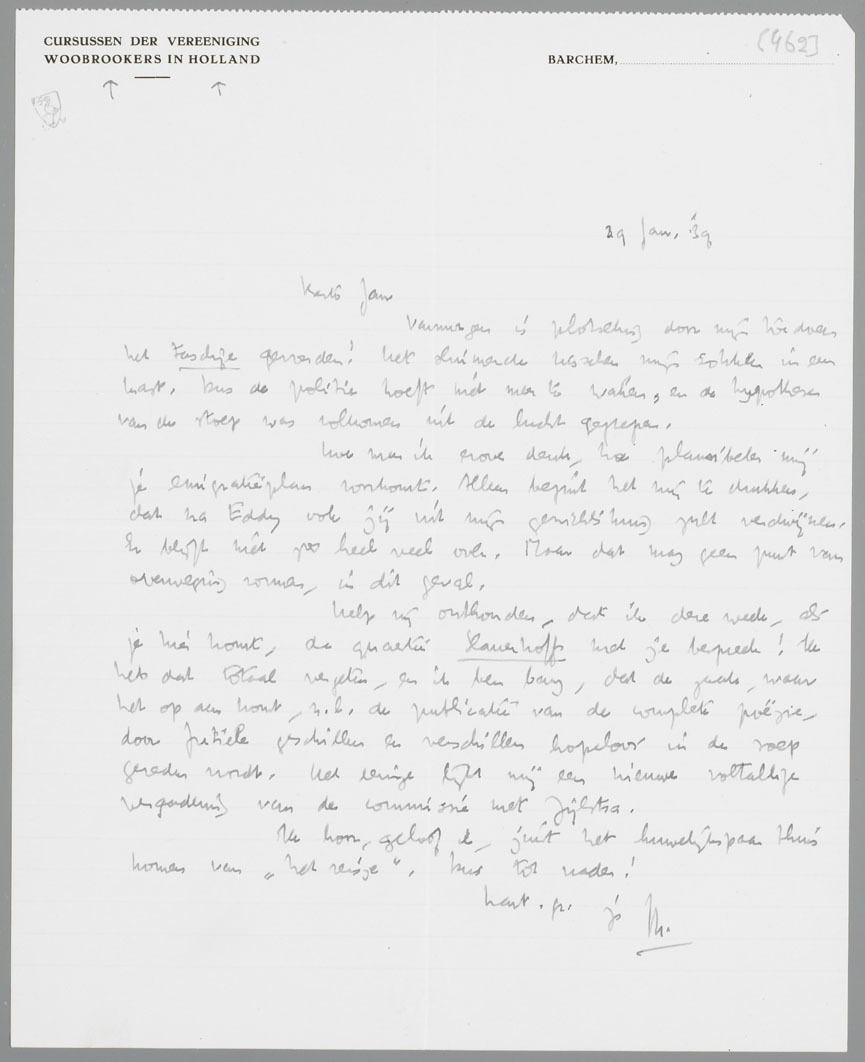 CURSUSSEN DER VEREENIGING
WOOBROOKERS IN HOLLAND
BARCHEM,
[462]
29 Jan. '39
Beste Jan
Vanmorgen is plotseling door mijn
het Taschje gevonden! Het tusschen mijn sokken in een
kast. Dus de politie hoeft niet meer te waken, en de hypothese
van de stoep was volkomen uit de lucht gegrepen.
Hoe meer ik erover denk, hoe plausibeler mij
je emigratieplan voorkomt. Alleen begint het mij te drukken,
dat na Eddy ook jij uit mijn gezichtskring zult verdwijnen.
Er blijft niet zoo heel veel over. Maar dat mag geen punt van
overweging vormen, in dit geval.
Help mij onthouden, dat ik deze week, als
je hier komt, de quaestie Slauerhoff met je bespreek! Ik
heb dat totaal vergeten, en ik ben bang, dat de zaak, waar
het op aan komt, n.l. de publicatie van de complete poëzie,
door futiele geschillen en verschillen hopeloos in de soep
gereden wordt. Het eenige lijkt mij een nieuwe voltallige
vergadering van de commissie met Zijlstra.
Ik hoor, geloof ik, juist het huwelijkspaar thuis
komen van "het reisje". Dus tot nader!
hart. gr. je M.